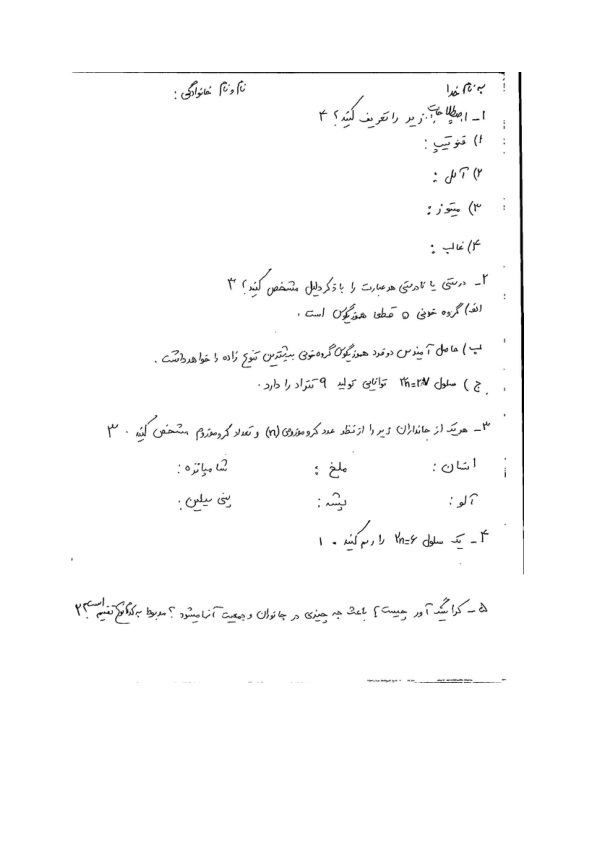 به نام خدا
نام و نام خانوادگی :
۱- اصطلاحات زیر را تعریف کنید؟ ۴
۱) فنوتیپ :
۲) آلل :
۳) میتوز :
۴) غالب :
۲- درستی یا نادرستی هر عبارت را با ذکر دلیل مشخص کنید؟ ۳
الف) گروه خونی O قطعی هموزیگوس است .
ب) حاصل آمیزش دو فرد هموزیگوس گروه خونی بیشترین تنوع زاده را خواهد داشت .
ج) سلول ۲n=۲۸ توانایی تولید ۹ تتراد را دارد .
۳- هر یک از جانداران زیر را از نظر عدد کروموزومی (n) و تعداد کروموزوم مشخص کنید . ۳
انسان : ملخ : شامپانزه :
آلو : پشه : پنی سیلین :
۴- یک سلول ۲n=۶ را رسم کنید . ۱
۵- کراسینگ آور چیست؟ باعث چه چیزی در جانوران و جمعیت آنها میشود؟ مربوط به کدام نوع تقسیم است؟ ۲